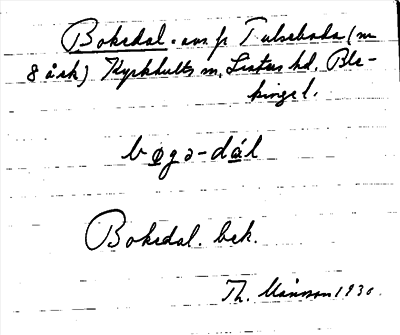 Boksdal. avs på Tulseboda (nr
8 år k) Kyrkhults sn, Listers hd, Ble-
kinge l.
bǫgə-dál
Boksdal. bek.
Th. Månsson 1930.